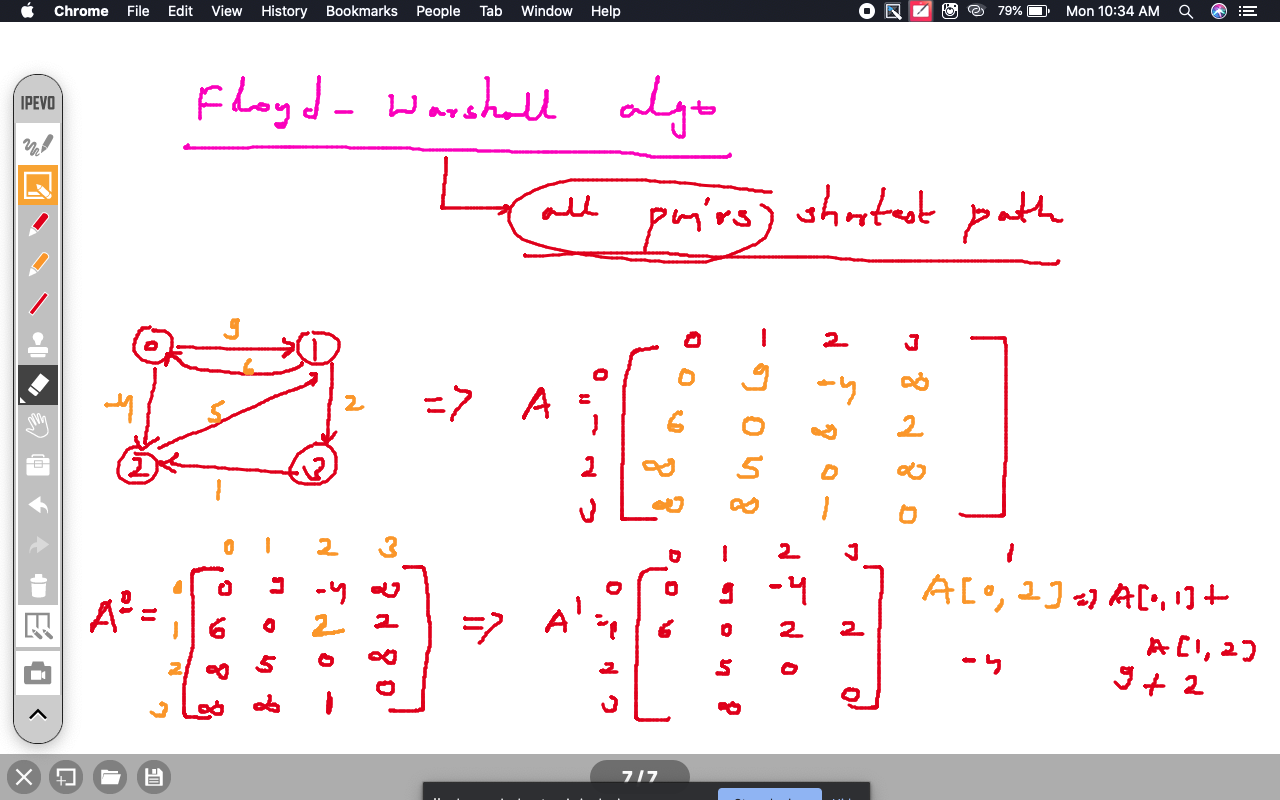 Chrome File Edit View History Bookmarks People Tab Window Help 79% Mon 10:34 AM
IPEVO
Floyd - Warshall algo
all pairs shortest path
0 9 1
6
-4 5 2
2 3
1
=> A =
0 1 2 3
0 0 9 -4 ∞
1 6 0 ∞ 2
2 ∞ 5 0 ∞
3 ∞ ∞ 1 0
A⁰ =
0 1 2 3
0 0 9 -4 ∞
1 6 0 2 2
2 ∞ 5 0 ∞
3 ∞ ∞ 1 0
=> A¹ =
0 1 2 3
0 0 9 -4
1 6 0 2 2
2 5 0
3 ∞ 0
1
A[0, 2] => A[0, 1] +
A[1, 2]
-4 9 + 2
7/7